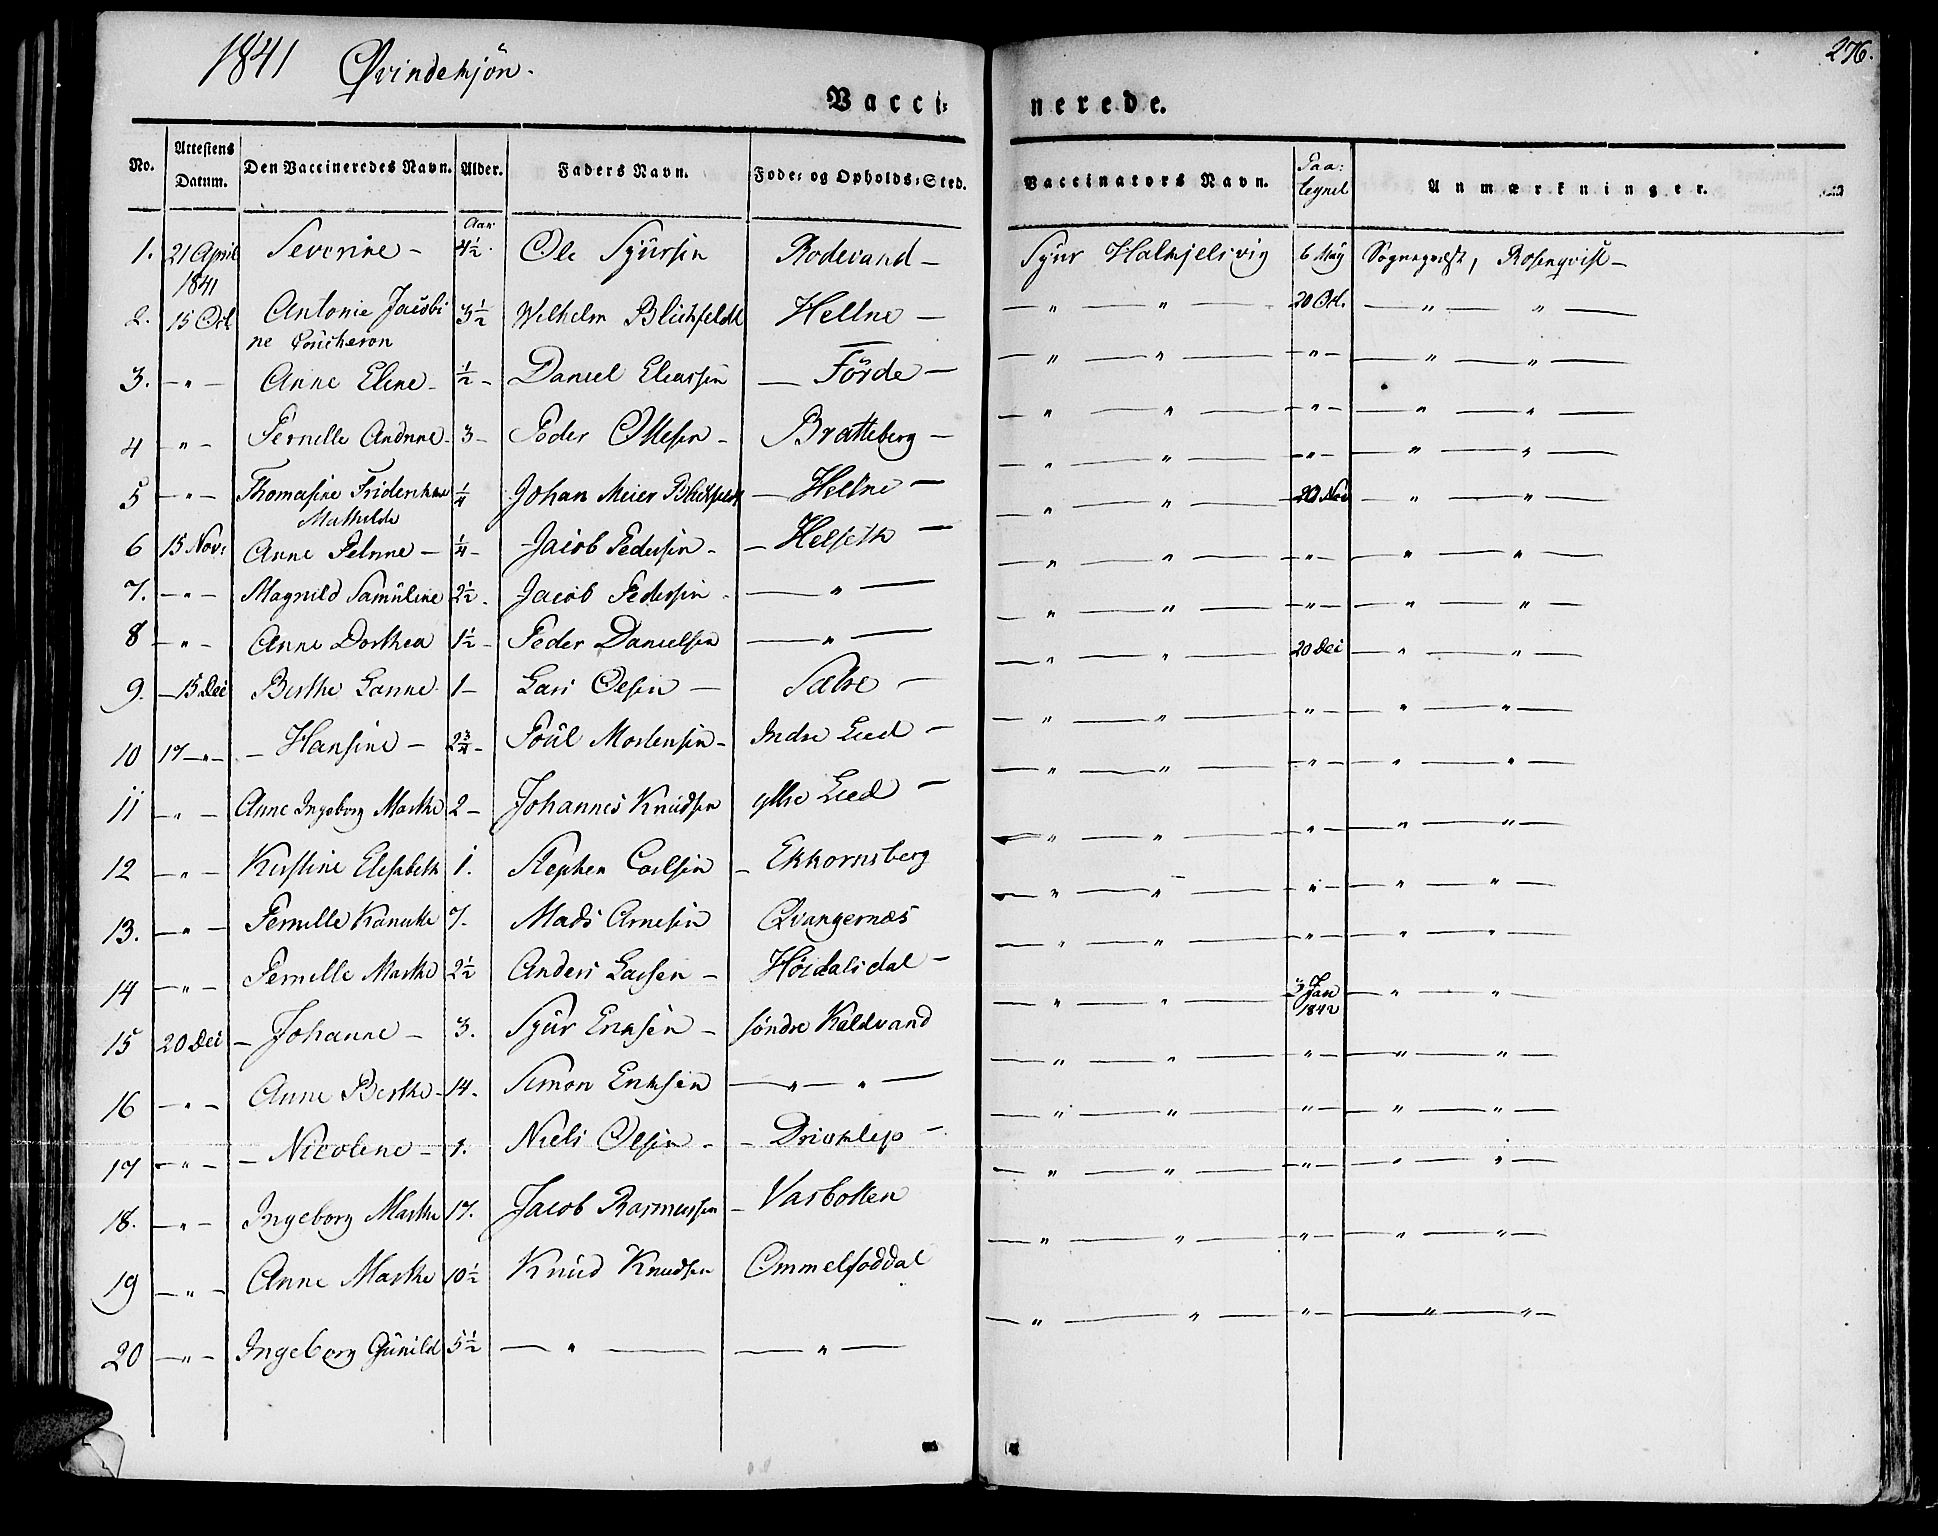 1841 Qvindekjön.
276.
Vacci= nerede.
No. Attestens Datum. Den Vaccineredes Navn. Alder. Faders Navn. Føde= og Opholds=Sted. Vaccinators Navn. Paa: tegnet Anmærkninger.
Aar
1. 21 April 1841 Severine - 4½. Ole Sjursen Rodevand - Sjur Halkjelsvig 6 May Sognepræst, Rosenqvist -
2. 15 Oct Antonie Jacobi 3½ Wilhelm Blichfeldt Hellne - - " - " - 20 Oct. - " - " -
ne Coucheron
3. - " - Anne Eline - ½ - Daniel Eliassen - Förde - - " - " - - " - - " - " -
4 - " - Pernille Andrine - 3 - Peder Ottesen - Bratteberg - - " - " - - " - - " - " -
5 - " - Thomasine Friderikke ¼ Johan Meier Blichfeldt - Hellne - - " - " - - " - - " - " -
Mathilde
6 15 Nov: Anne Petrine - ¼ - Jacob Pedersen - - Helseth - - " - " - 20 Nov - " - " -
7. - " - Magnild Samuline 2½ - Jacob Pedersen - - " - - " - " - - " - - " - " -
8 - " - Anne Dorthea 1½ - Peder Danielsen - " - - " - " - - " - - " - " -
9. - 15 Dec Berthe Lanne 1 - Lars Olsen - Sætre - - " - " - 20 Dec - " - " -
10 17 - " - - Hansine - 2¾ - Poul Mortensen - Indre Lied - - " - " - - " - - " - " -
11 - " - Anne Ingeborg Marthe 2 - Johannes Knudsen ytre Lied - - " - " - - " - - " - " -
12 - " - Kirstine Elisabeth 1. Stephen Carlsen - Ekkornsberg - " - " - - " - - " - " -
13. - " - Pernille Kanutte 7. Mads Arnesen Qvangernæs - " - " - - " - - " - " -
14 - " - Pernille Marthe 2½ Anders Larsen - Höidalsdal - - " - " - - " - - " - " -
15 20 Dec - Johanne - 3. Sjur Eriksen - söndre Kaldvand - " - " - 3 Jan 1842 - " - " -
16 - " - Anne Berthe - 14. Simon Eriksen - " - " - - " - " - - " - - " - " -
17 - " - - Nicoline - 1. Niels Olsen - - Drivklep - - " - " - - " - - " - " -
18. - " - Ingeborg Marthe 17. Jacob Rasmussen - Vasbotten - " - " - - " - - " - " -
19 - " - Anne Marthe 10½ Knud Knudsen Ommelfoddal - " - " - - " - - " - " -
20 - " - Ingeborg Gunild 5½ - " - - " - - " - " - - " - - " - " -